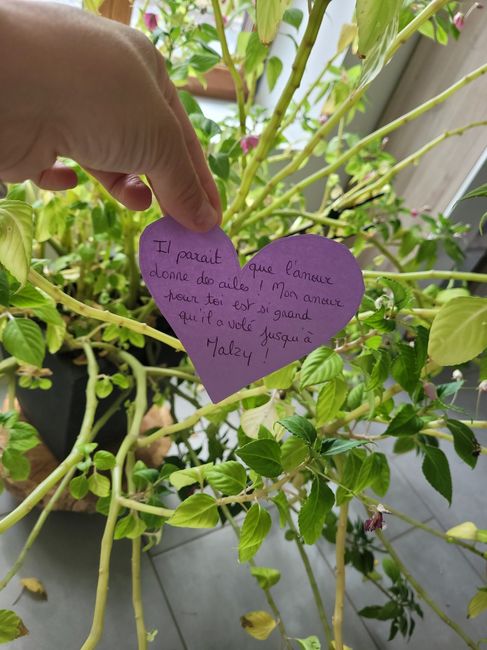 Il parait que l'amour
donne des ailes ! Mon amour
pour toi est si grand
qu'il a volé jusqu'à
Malzy !